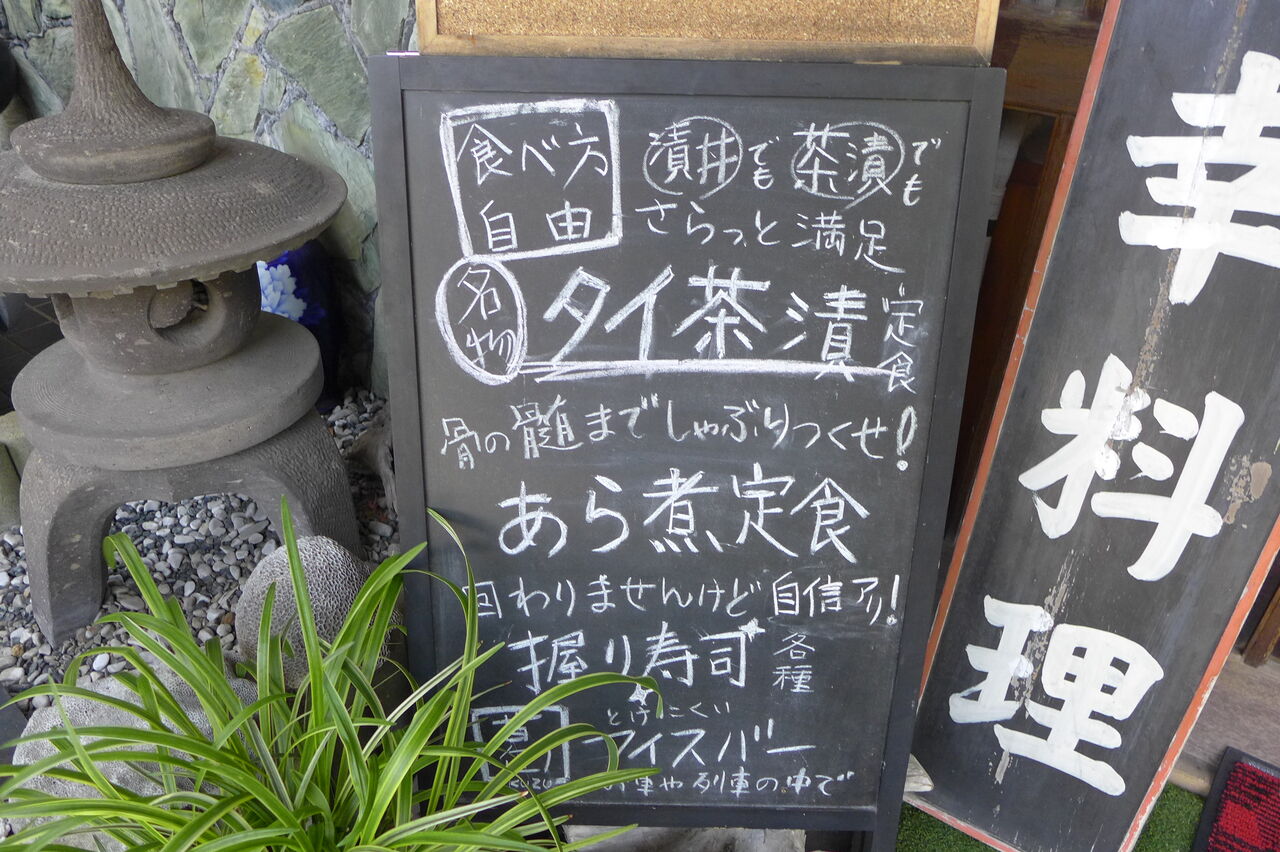 食べ方
自由
漬丼でも 茶漬でも
さらっと満足
名物 タイ茶漬 定食
骨の髄までしゃぶりつくせ!
あら煮定食
回わりませんけど自信アリ!
握り寿司 各種
とけにくい
アイスバー
車や列車の中で
幸料理